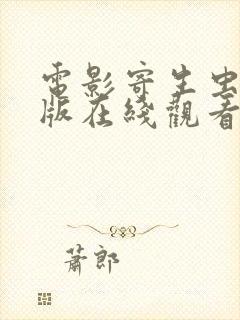 電影寄生虫
版在綫觀看
蕭郎